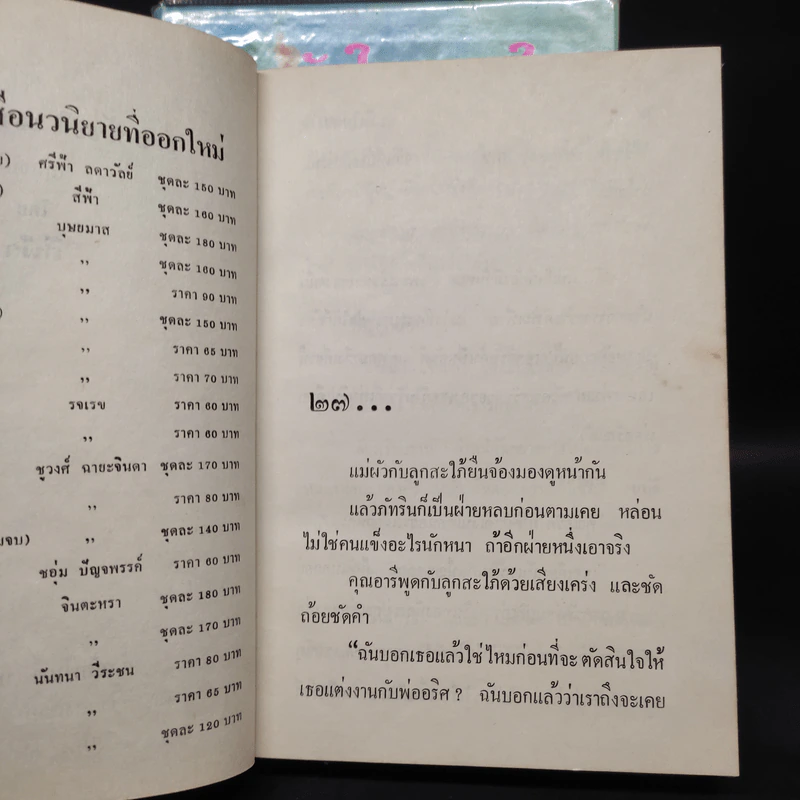 อนวนิยายที่ออกใหม่
ศรีฟ้า ลดาวัลย์ ชุดละ 150 บาท
สีฟ้า ชุดละ 160 บาท
บุษยมาส ชุดละ 180 บาท
,, ชุดละ 160 บาท
,, ราคา 90 บาท
,, ชุดละ 150 บาท
,, ราคา 65 บาท
,, ราคา 70 บาท
รจเรข ราคา 60 บาท
,, ราคา 60 บาท
ชูวงศ์ ฉายะจินดา ชุดละ 170 บาท
,, ราคา 80 บาท
จบ) ,, ชุดละ 140 บาท
ชอุ่ม ปัญจพรรค์ ราคา 60 บาท
จินตะหรา ชุดละ 180 บาท
,, ชุดละ 170 บาท
นันทนา วีระชน ราคา 80 บาท
,, ราคา 65 บาท
,, ชุดละ 120 บาท
๒๗...
แม่ผัวกับลูกสะใภ้ยืนจ้องมองดูหน้ากัน
แล้วภัทรินก็เป็นฝ่ายหลบก่อนตามเคย หล่อน
ไม่ใช่คนแข็งอะไรนักหนา ถ้าอีกฝ่ายหนึ่งเอาจริง
คุณอารีพูดกับลูกสะใภ้ด้วยเสียงเคร่ง และชัด
ถ้อยชัดคำ
“ฉันบอกเธอแล้วใช่ไหมก่อนที่จะ ตัดสินใจให้
เธอแต่งงานกับพ่ออริศ ? ฉันบอกแล้วว่าเราถึงจะเคย